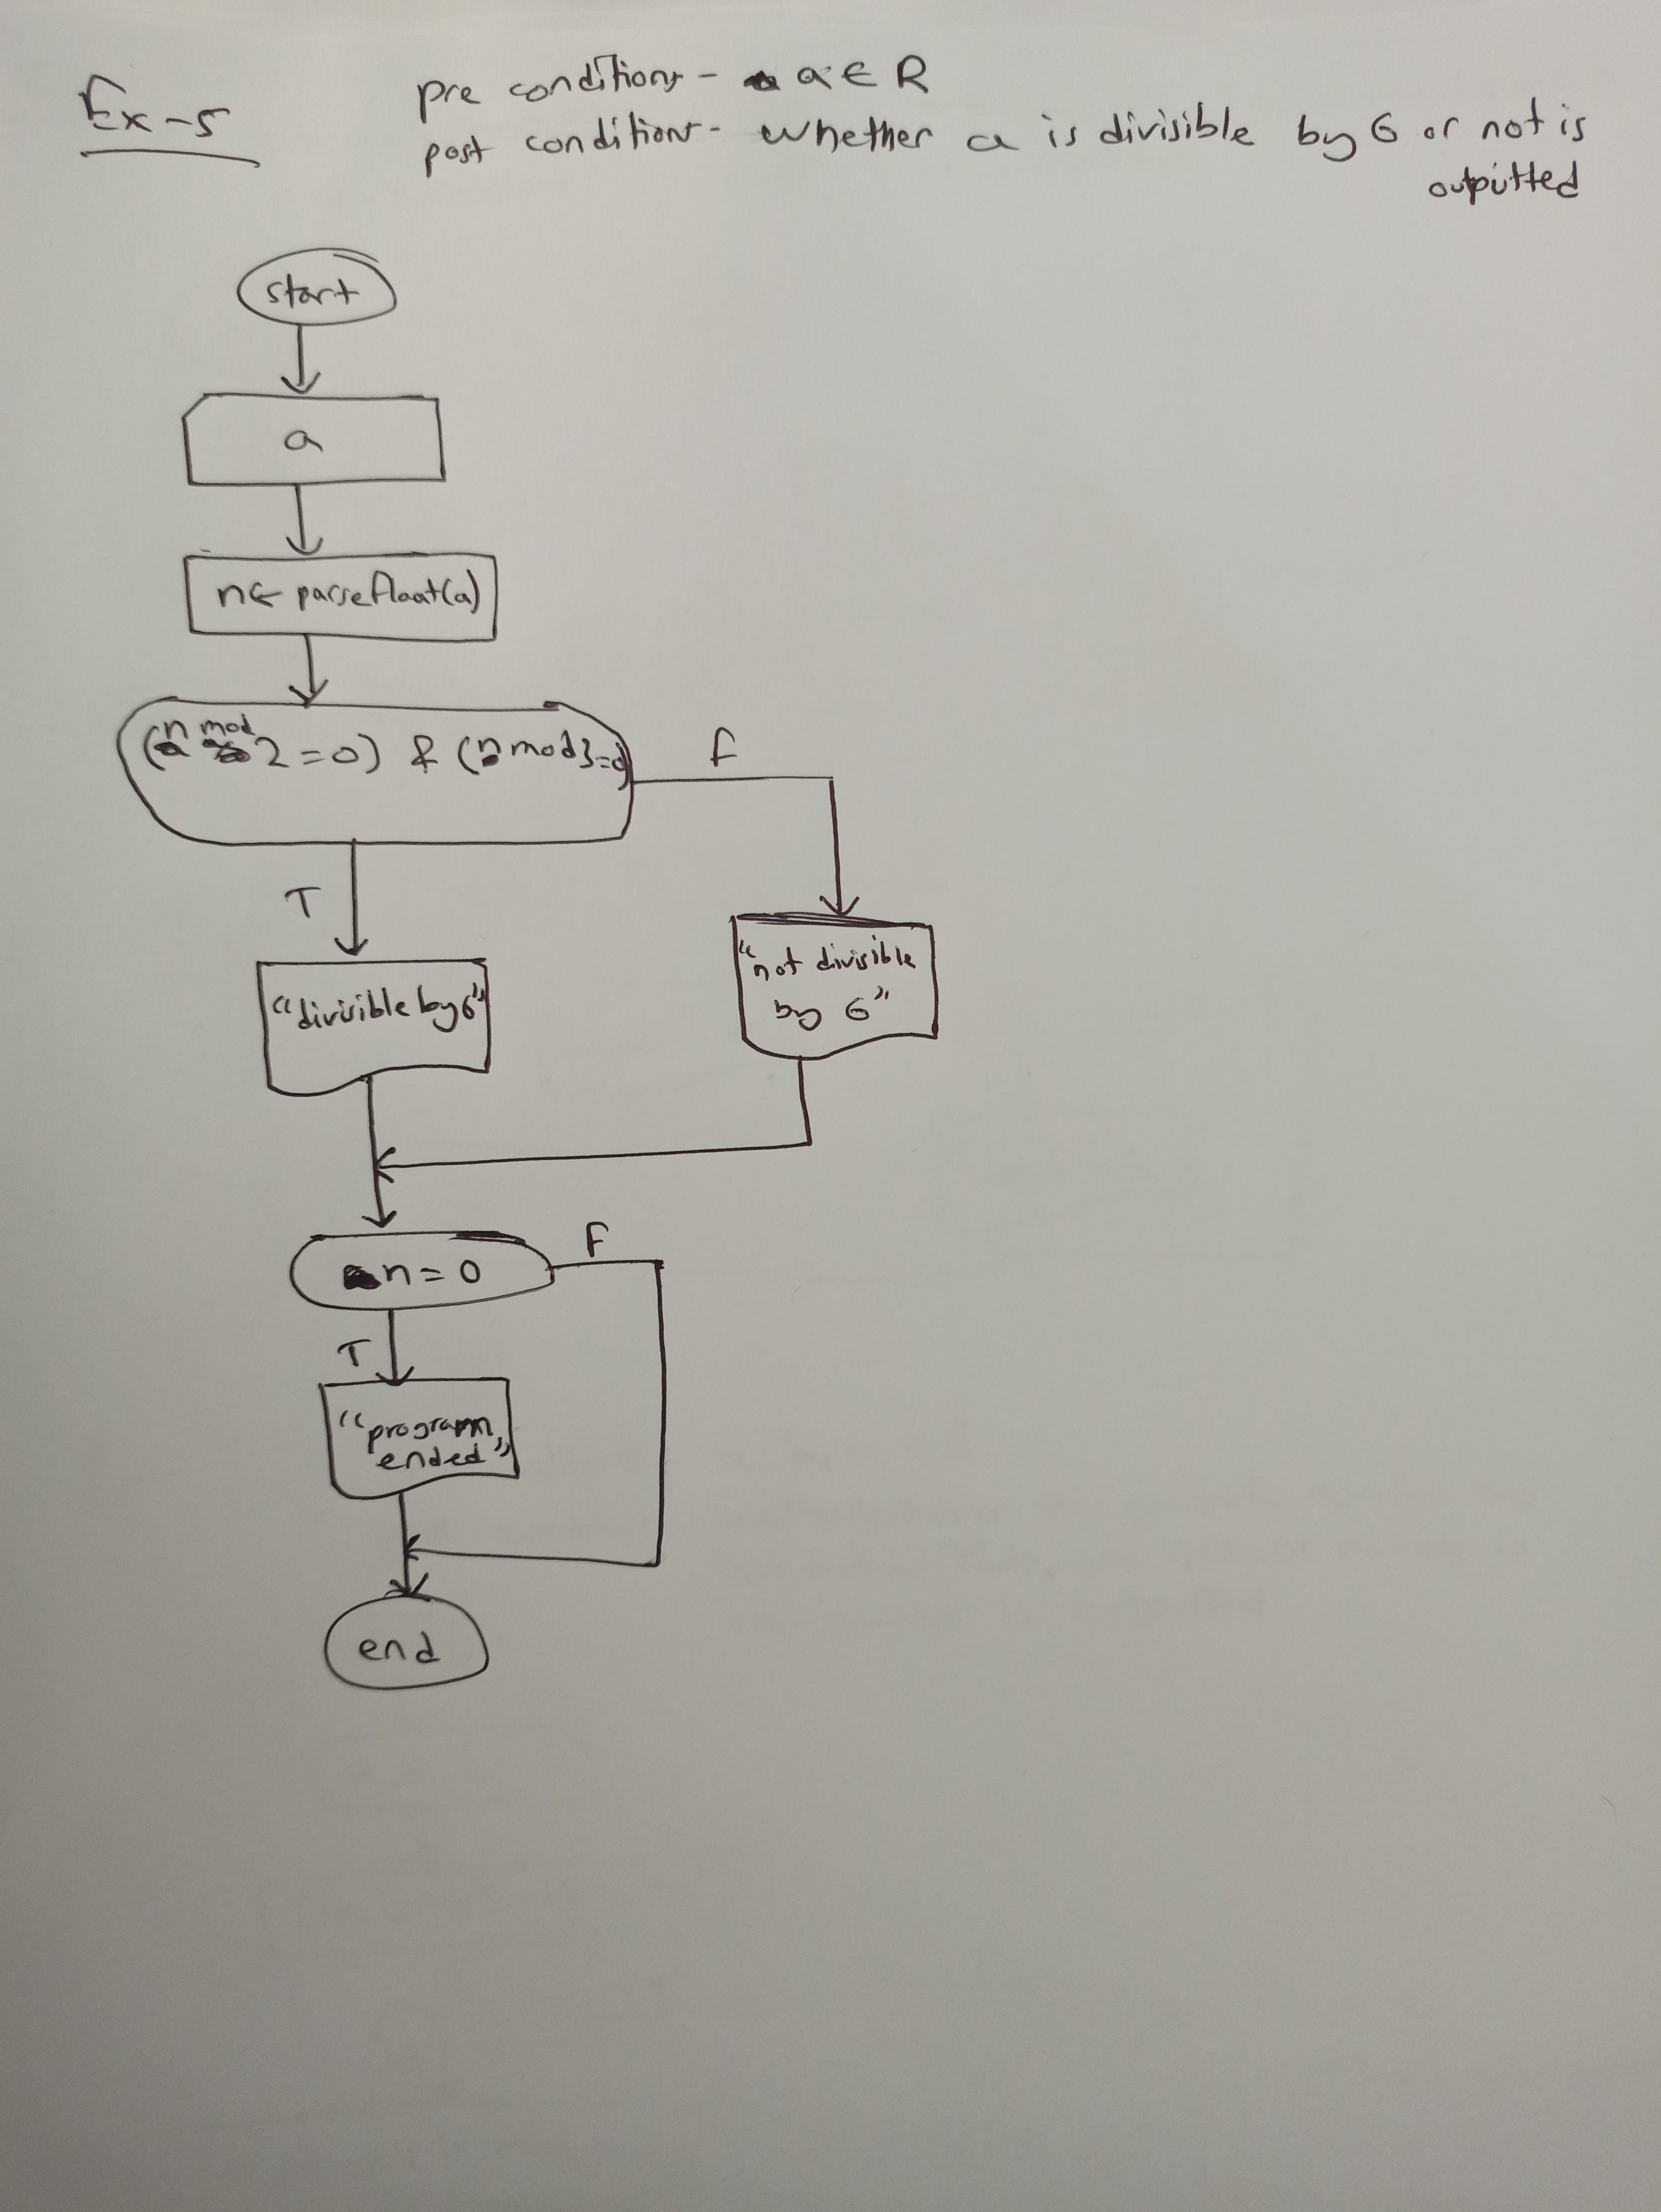 Ex-5
pre conditions - a ∈ R
post conditions - whether a is divisible by 6 or not is
outputted
start
a
n ← parsefloat(a)
(n mod 2 = 0) & (n mod 3 = 0)
F
T
"divisible by 6"
"not divisible
by 6"
n = 0
F
T
"program
ended"
end